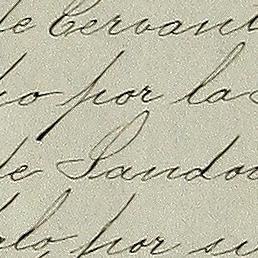 de Cervant
o por la
de Sandov
lo por su